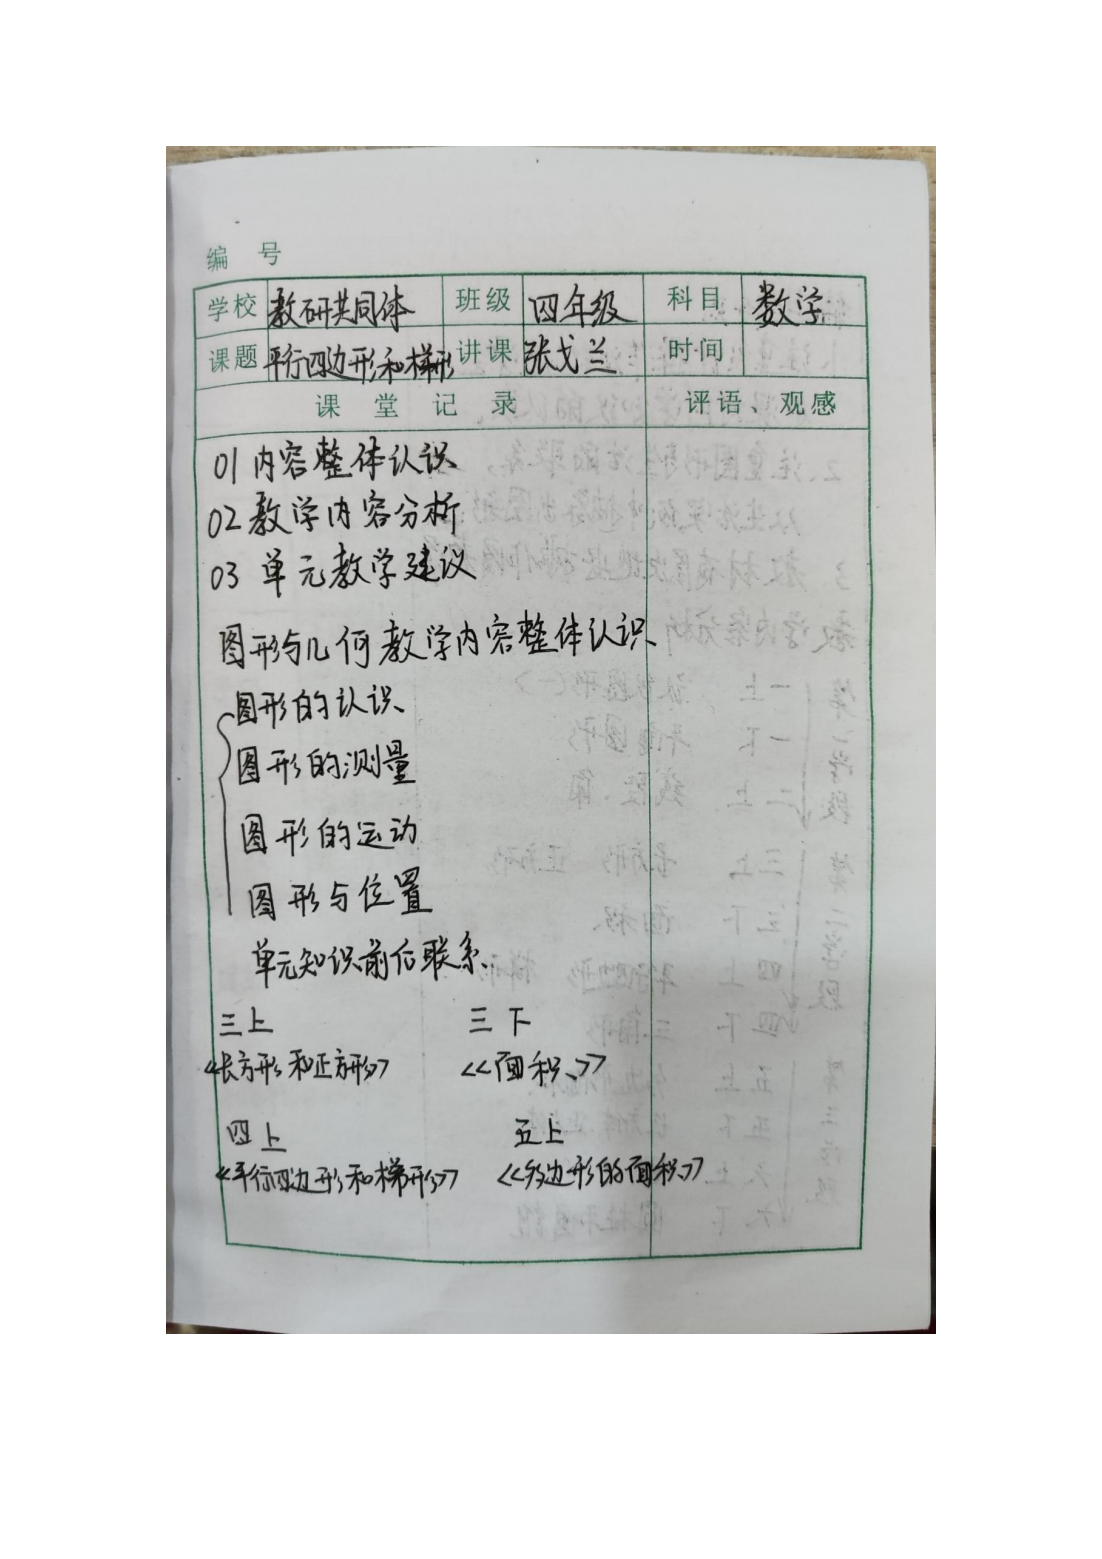 编 号
学校 教研共同体 班级 四年级 科目 数学
课题 平行四边形和梯形 讲课 张戈兰 时间
课 堂 记 录 评语、观感
01 内容整体认识
02 教学内容分析
03 单元教学建议
图形与几何教学内容整体认识
图形的认识
图形的测量
图形的运动
图形与位置
单元知识前后联系
三上 三下
《长方形和正方形》 《面积》
四上 五上
《平行四边形和梯形》 《多边形的面积》